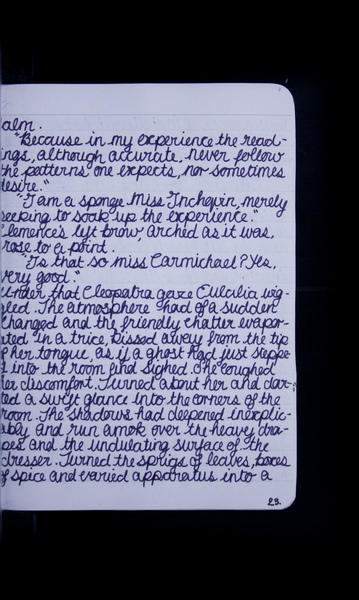 alm.
"Because in my experience the read-
ings, although accurate, never follow
the patterns one expects, nor sometimes
desire."
"I am a sponge Miss Inchquin, merely
seeking to soak up the experience."
Clemence's left brow, arched as it was,
rose to a point.
"Is that so miss Carmichael? Yes,
very good."
Under that Cleopatra gaze Eulalia wig-
gled. The atmosphere had of a sudden
changed and the friendly chatter evapor-
ated in a trice, hissed away from the tip
of her tongue, as if a ghost had just steppe
d into the room and sighed. She coughed
her discomfort. Turned about her and dar-
ted a swift glance into the corners of the
room. The shadows had deepened inexplic-
ably and run amok over the heavy dra-
pes and the undulating surface of the
dresser. Turned the sprigs of leaves, boxes
of spice and varied apparatus into a
23.